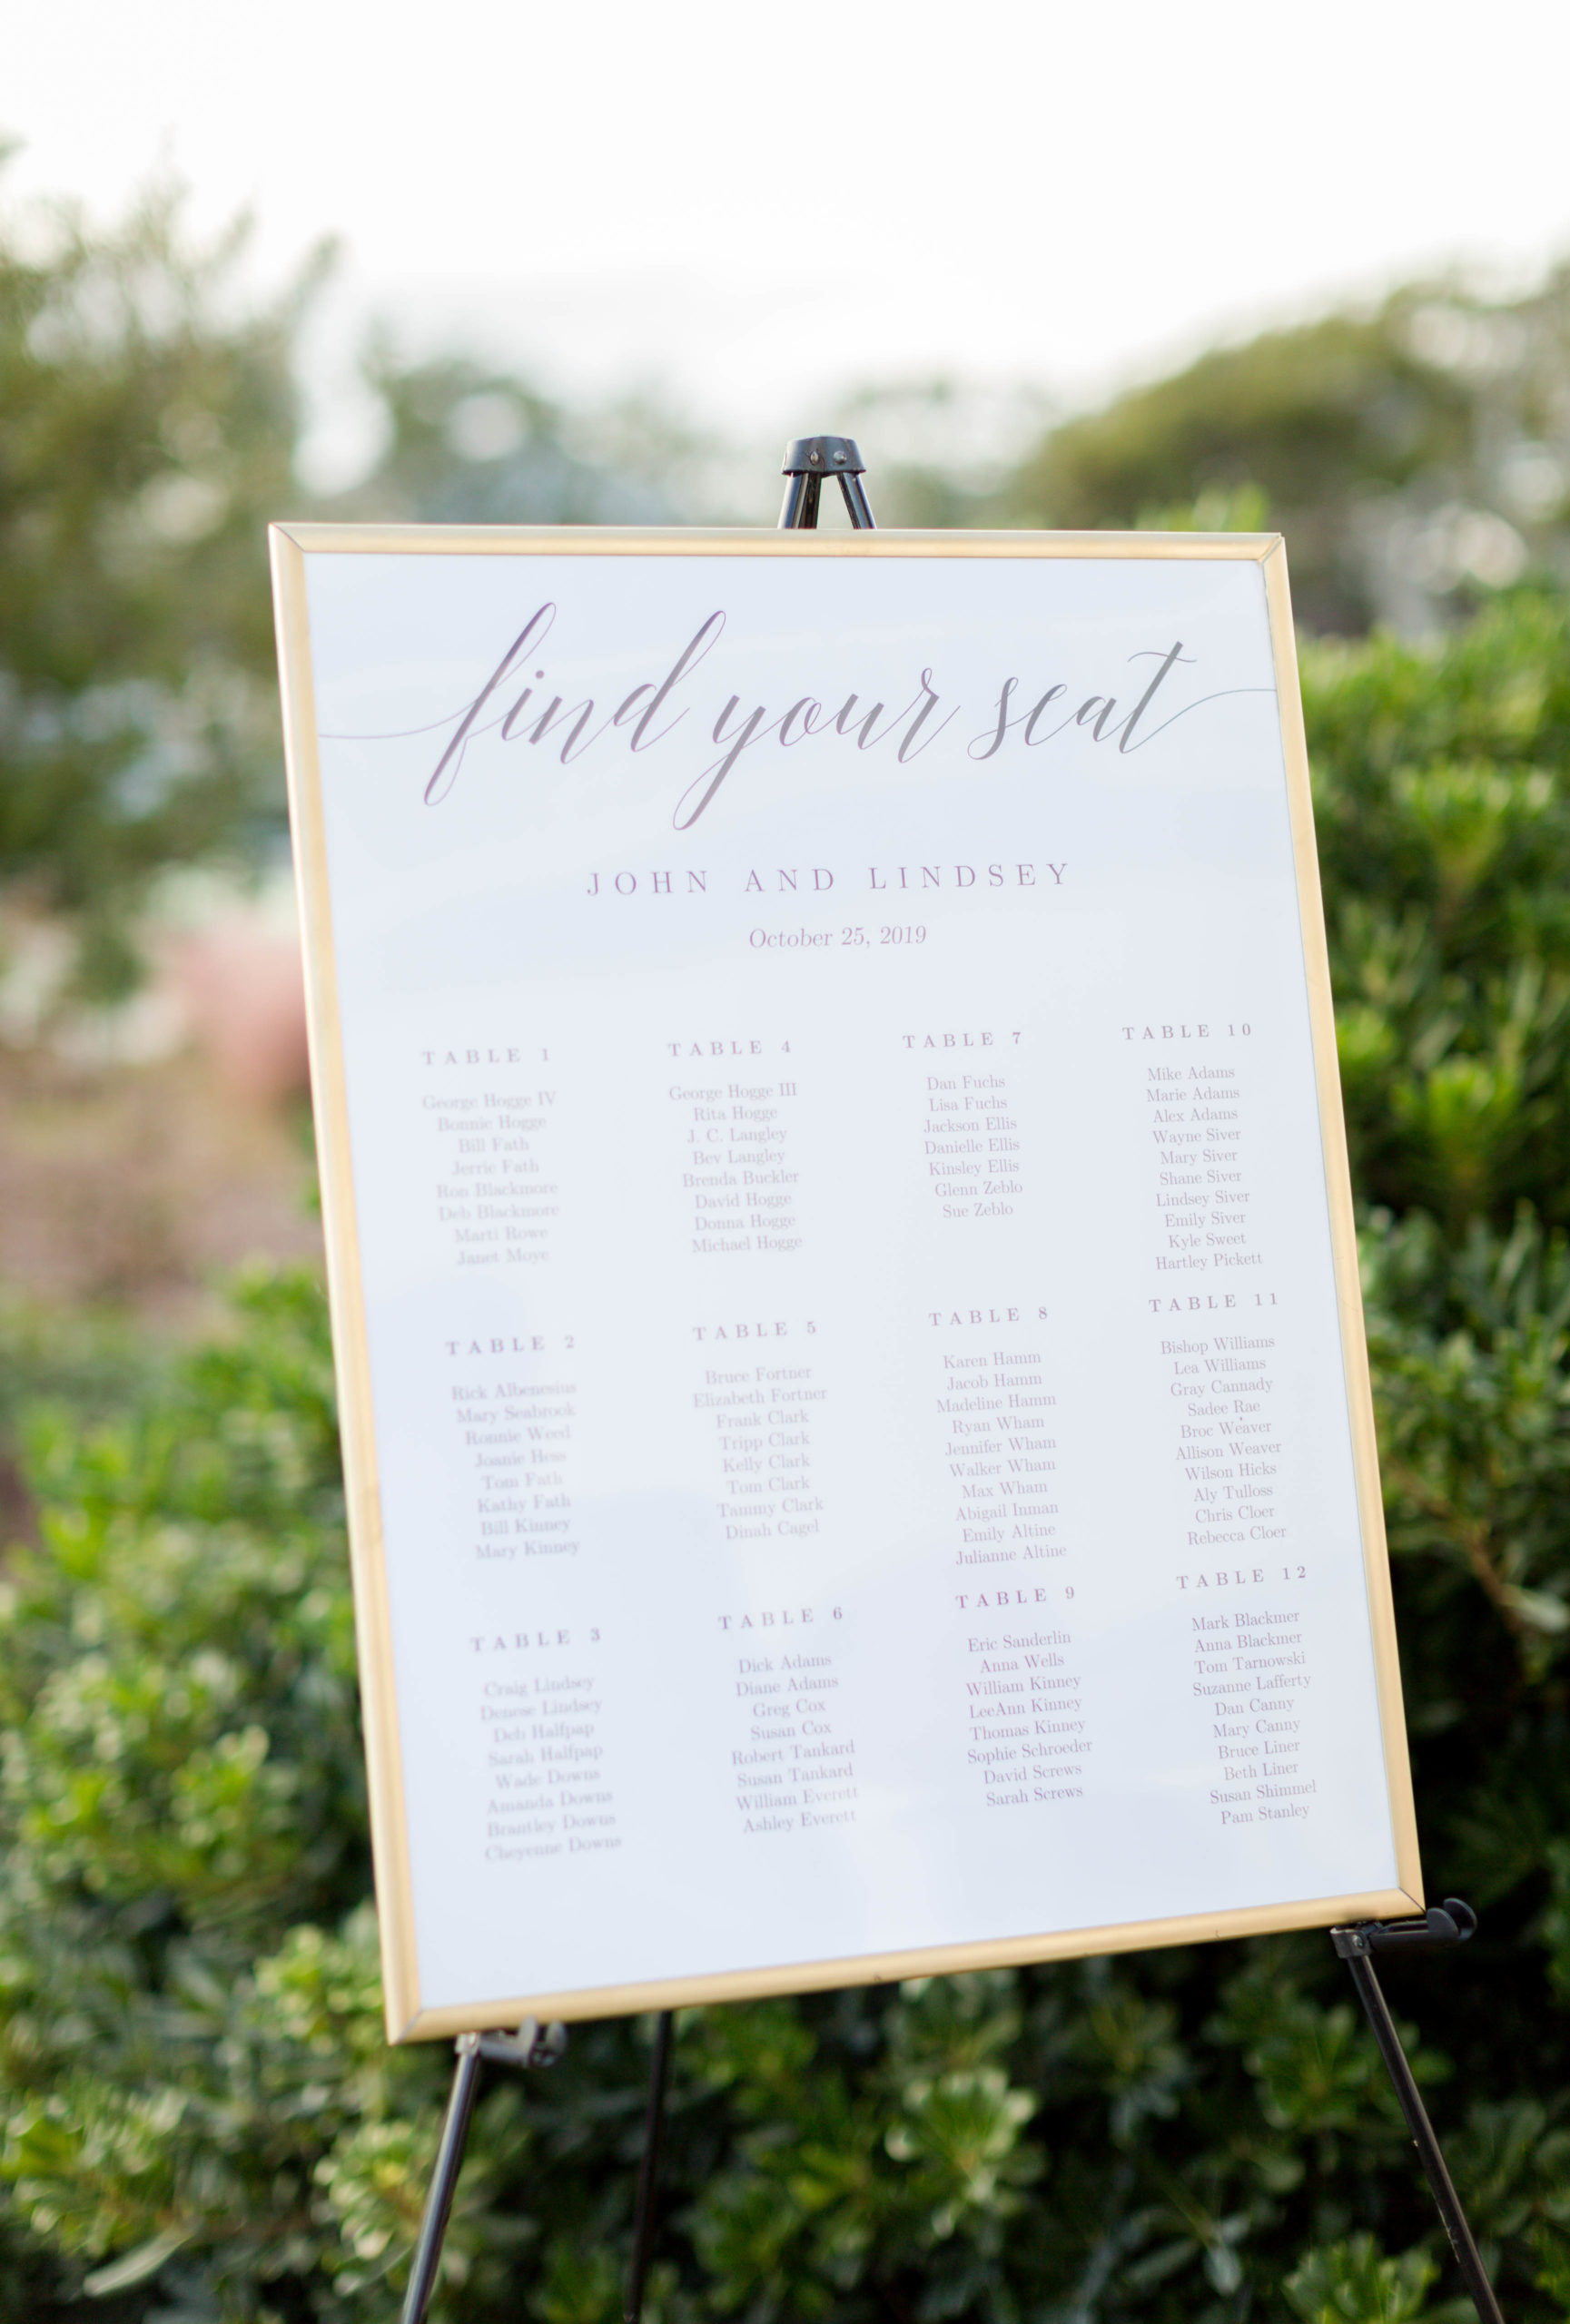 find your seat
JOHN AND LINDSEY
October 25, 2019
TABLE 1
George Hogge IV
Bonnie Hogge
Bill Fath
Jerrie Fath
Ron Blackmore
Deb Blackmore
Marti Rowe
Janet Moye
TABLE 2
Rick Albenesius
Mary Seabrook
Ronnie Weed
Joanie Hess
Tom Fath
Kathy Fath
Bill Kinney
Mary Kinney
TABLE 3
Craig Lindsey
Denese Lindsey
Deb Halfpap
Sarah Halfpap
Wade Downs
Amanda Downs
Brantley Downs
Cheyenne Downs
TABLE 4
George Hogge III
Rita Hogge
J. C. Langley
Bev Langley
Brenda Buckler
David Hogge
Donna Hogge
Michael Hogge
TABLE 5
Bruce Fortner
Elizabeth Fortner
Frank Clark
Tripp Clark
Kelly Clark
Tom Clark
Tammy Clark
Dinah Cagel
TABLE 6
Dick Adams
Diane Adams
Greg Cox
Susan Cox
Robert Tankard
Susan Tankard
William Everett
Ashley Everett
TABLE 7
Dan Fuchs
Lisa Fuchs
Jackson Ellis
Danielle Ellis
Kinsley Ellis
Glenn Zeblo
Sue Zeblo
TABLE 8
Karen Hamm
Jacob Hamm
Madeline Hamm
Ryan Wham
Jennifer Wham
Walker Wham
Max Wham
Abigail Inman
Emily Altine
Julianne Altine
TABLE 9
Eric Sanderlin
Anna Wells
William Kinney
LeeAnn Kinney
Thomas Kinney
Sophie Schroeder
David Screws
Sarah Screws
TABLE 10
Mike Adams
Marie Adams
Alex Adams
Wayne Siver
Mary Siver
Shane Siver
Lindsey Siver
Emily Siver
Kyle Sweet
Hartley Pickett
TABLE 11
Bishop Williams
Lea Williams
Gray Cannady
Sadee Rae
Broc Weaver
Allison Weaver
Wilson Hicks
Aly Tulloss
Chris Cloer
Rebecca Cloer
TABLE 12
Mark Blackmer
Anna Blackmer
Tom Tarnowski
Suzanne Lafferty
Dan Canny
Mary Canny
Bruce Liner
Beth Liner
Susan Shimmel
Pam Stanley